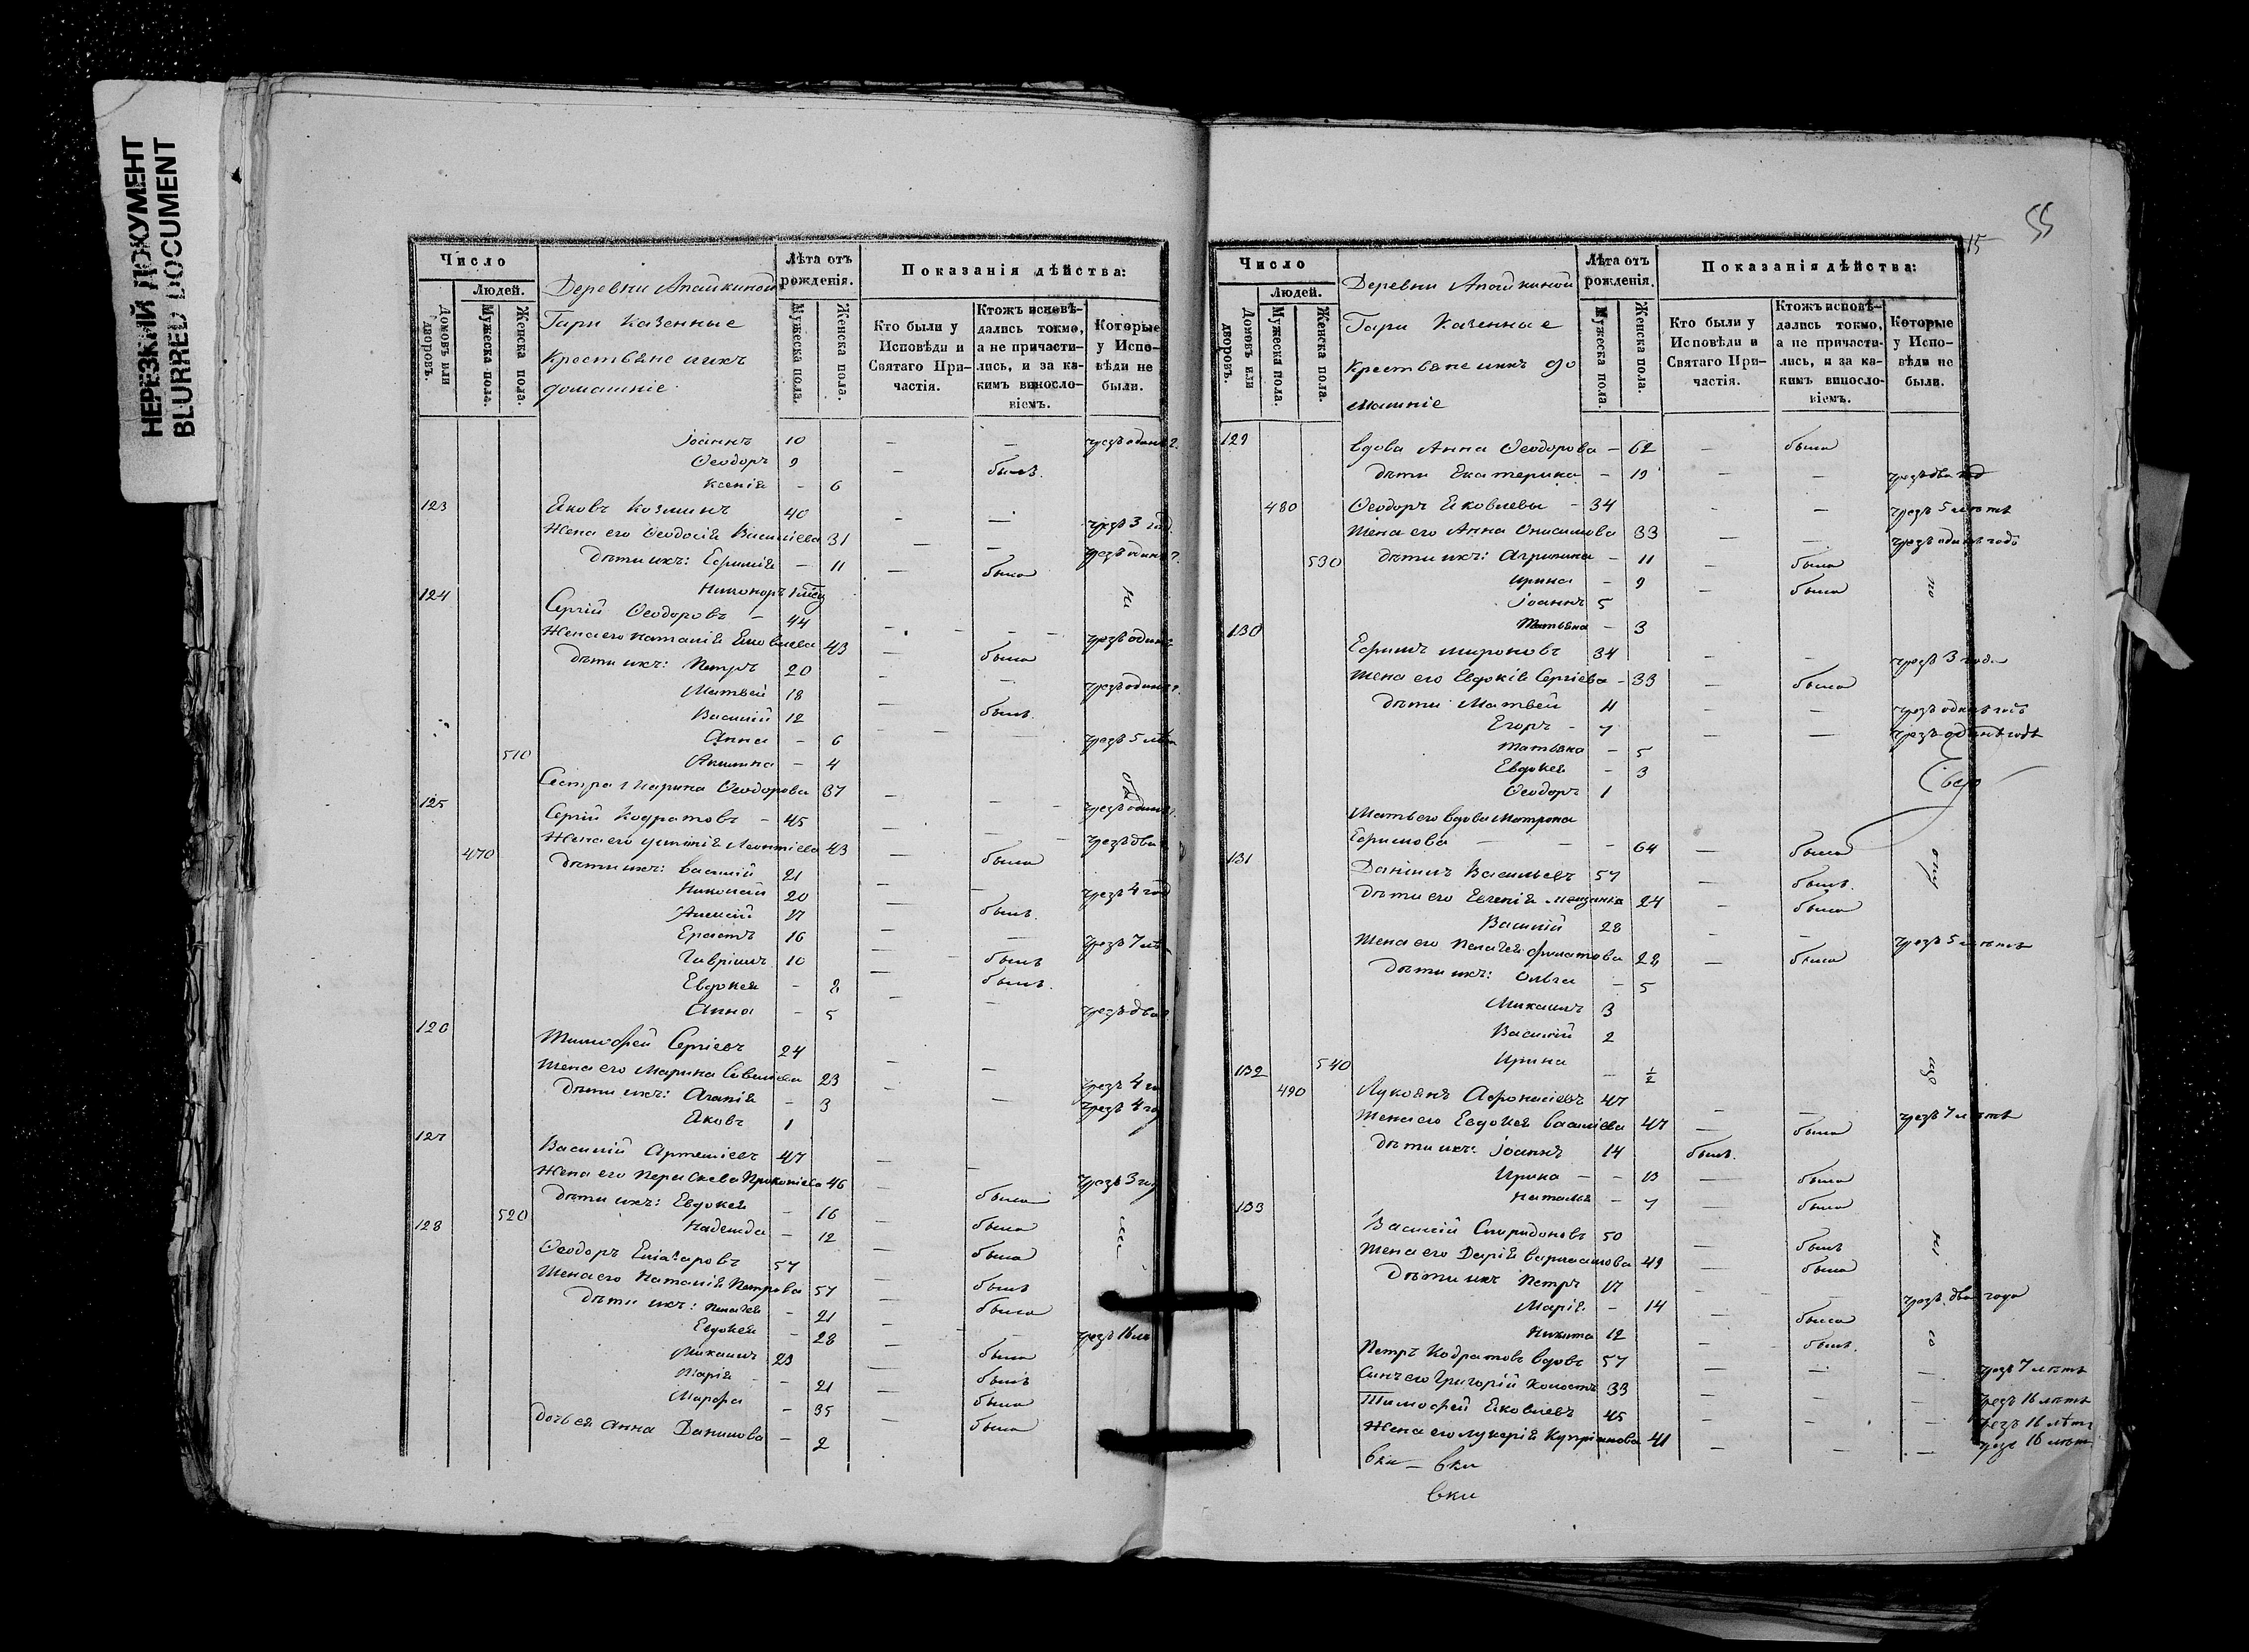 НЕРЕЗКИЙ ДОКУМЕНТ
BLURRED DOCUMENT
Число
Людей.
Домовъ или дворовъ.
Мужеска пола.
Женска пола.
Деревни Апайкиной
Гари Казенные
Крестьяне и ихъ
домашніе
Лѣта отъ рожденія.
Мужеска пола.
Женска пола.
Показанія дѣйства:
Кто были у Исповѣди и Святаго Причастія.
Ктожъ исповѣдались токмо, а не причастились, и за какимъ винословіемъ.
Которые у Исповѣди не были.
Іоаннъ 10 — — чрезъ одинъ г.
Ѳеодоръ 9 — былъ.
Ксенія — 6
123 Яковъ Козминъ 40 — — чрезъ 3 год.
Жена его Ѳеодосія Василіева 31 — — чрезъ одинъ г.
Дѣти ихъ: Ефимія — 11 — была
Никоноръ
124 Сергій Ѳеодоровъ — 44 — — — чрезъ одинъ
Жена его Наталія Яковлева 43 — была
Дѣти ихъ: Петръ 20 — — чрезъ одинъ г.
Матвей 18 — былъ.
Василій 12 — — — чрезъ 5 лѣт
Анна — 6
510 Акилина — 4
Сестра Ѳеодорова 37 — — — чрезъ одинъ г.
125 Сергій Кодратовъ — 45 — — чрезъ два
Жена его Леонтіева 43 — была
470 Дѣти ихъ: Василій 21 — — чрезъ 4 год
Николай 20 — былъ.
Алексій 17 — — чрезъ 7 лѣ
Ерастъ 16 — былъ
Гавріилъ 10 — былъ.
Евдокея — 8 — — чрезъ два г
Анна — 5
126 Тимофей Сергіевъ 24 — — чрезъ 4 го
Жена его Марина Савеліева 23 — чрезъ 4 го
Дѣти ихъ: Агапія — 3
Яковъ 1
127 Василій Артеміевъ 47 — — чрезъ 3 го
Жена его Параскева Прокопіева 46 — была
Дѣти ихъ: Евдокея — 16 — была
520 Надежда — 12 — была
128 Ѳеодоръ Еліазаровъ 57 — былъ
Жена его Наталія Петрова 57 — была
Дѣти ихъ: Пелагея — 21 — — чрезъ 16 лѣ
Евдокея — 28 — была
Михаилъ 23 — былъ
Марія — 21 — была
Марфа — 35 — была
Дочь ея Анна Данилова — 2
55
15
Число
Людей.
Домовъ или дворовъ.
Мужеска пола.
Женска пола.
Деревни Апайкиной
Гари Казенные
Крестьяне и ихъ до
машніе
Лѣта отъ рожденія.
Мужеска пола.
Женска пола.
Показанія дѣйства:
Кто были у Исповѣди и Святаго Причастія.
Ктожъ исповѣдались токмо, а не причастились, и за какимъ винословіемъ.
Которые у Исповѣди не были.
129 Вдова Анна Ѳеодорова — 62 — была
Дѣти Екатерина — 19 — — чрезъ два год
480 Ѳеодоръ Яковлевы — 34 — — чрезъ 5 лѣтъ
Жена его Анна Онисимова 33 — — чрезъ одинъ годъ
530 Дѣти ихъ: Агрипина — 11 — была
Ирина — 9 — была
Іоаннъ 5
Татьяна — 3
130 Ефимъ Мироновъ 34 — — чрезъ 3 года
Жена его Евдокія Сергіева — 33 — была
Дѣти Матвей 11 — чрезъ одинъ годъ
Егоръ — 7 — чрезъ одинъ годъ
Татьяна — 5
Евдокея — 3
Ѳеодоръ 1
Мать его вдова Матрона
Ефимова — — — 64 — была
131 Даніилъ Васильевъ 57 — былъ.
Дѣти его Евгенія 24 — была
Василій 28 — — чрезъ 5 лѣтъ
Жена его Пелагея Филатова 22 — была
Дѣти ихъ: Ольга — 5
Михаилъ 3
Василій 2
540 Ирина — ½
132 490 Лукоянъ Афонасіевъ 47 — — чрезъ 7 лѣтъ
Жена его Евдокея Василіева 47 — была
Дѣти ихъ: Іоаннъ 14 былъ.
Ирина — — 13 — была
Наталья — 7 — была
133 Василій Спиридоновъ 50 — былъ
Жена его Дарія Варлаамова 49 — была
Дѣти ихъ Петръ 17 — — чрезъ два года
Марія — 14 — была
Никита 12 — былъ.
Петръ Кодратовъ вдовъ 57 — — — чрезъ 7 лѣтъ
Сынъ его Григорій холостъ 33 — — — чрезъ 16 лѣтъ
Тимофей Яковлевъ 45 — — — чрезъ 16 лѣтъ
Жена его Лукерія Купріянова 41 — — — чрезъ 16 лѣтъ